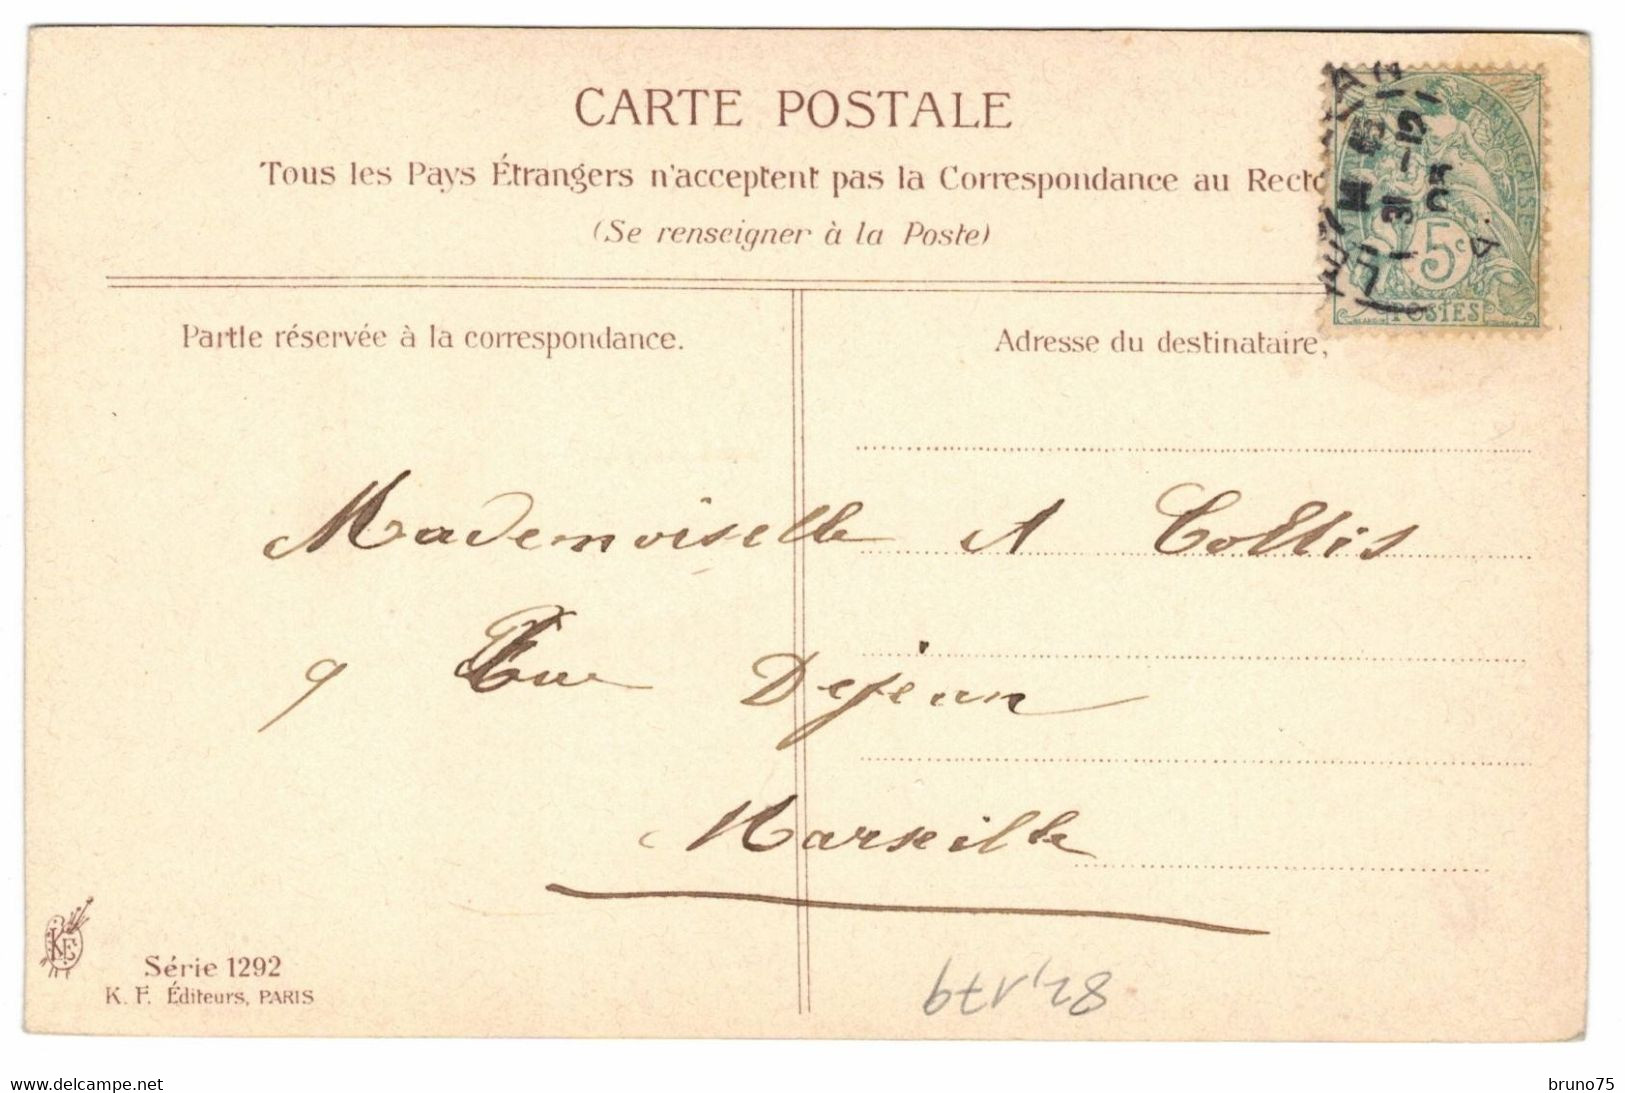 CARTE POSTALE
Tous les Pays Étrangers n'acceptent pas la Correspondance au Recto
(Se renseigner à la Poste)
5c
POSTES
Partie réservée à la correspondance.
Adresse du destinataire,
Mademoiselle A Collis
9 Rue Dejean
Marseille
KF
Série 1292
K. F. Éditeurs, PARIS
www.delcampe.net
bruno75